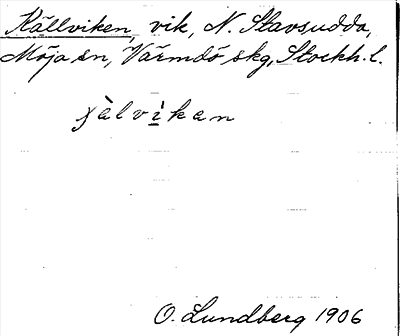 Källviken, vik, N. Stavsudda,
Möja sn, Värmdö skg, Stockh. l.
χàlvìkan
O. Lundberg 1906